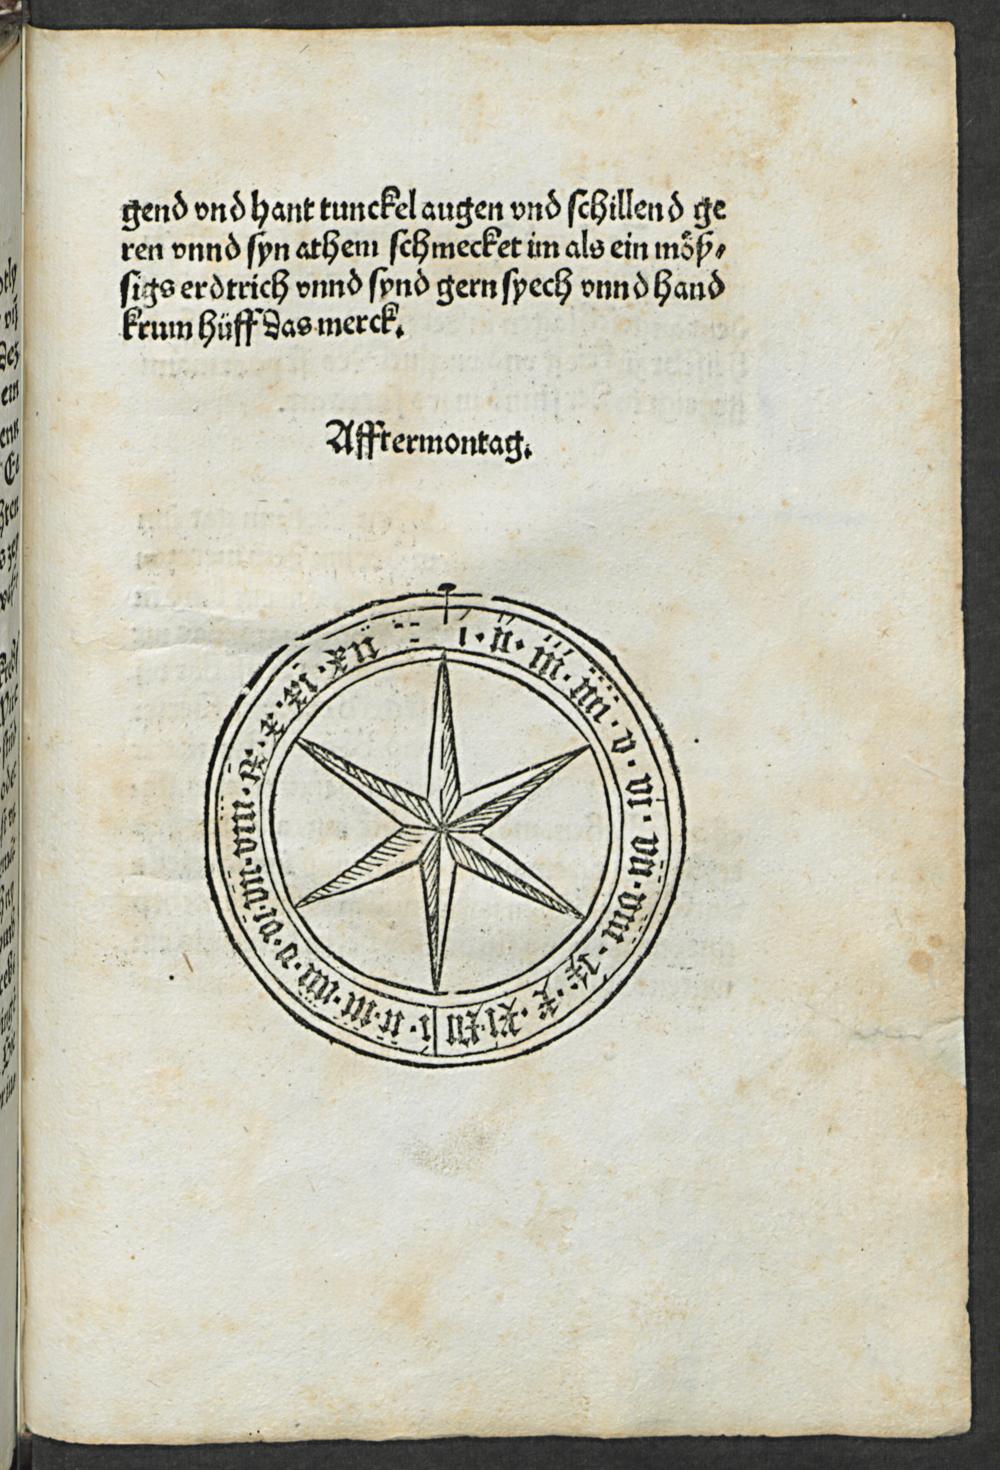 gend vnd hant tunckel augen vnd schillend ge
ren vnnd syn athem schmecket im als ein mösz⸗
sigs erdtrich vnnd synd gern spech vnnd hand
krum hüff Das merck.
Afftermontag.
i · ii · iii · iiii · v · vi · vii · viii · ix · x · xi · xii
i · ii · iii · iiii · v · vi · vii · viii · ix · x · xi · xii